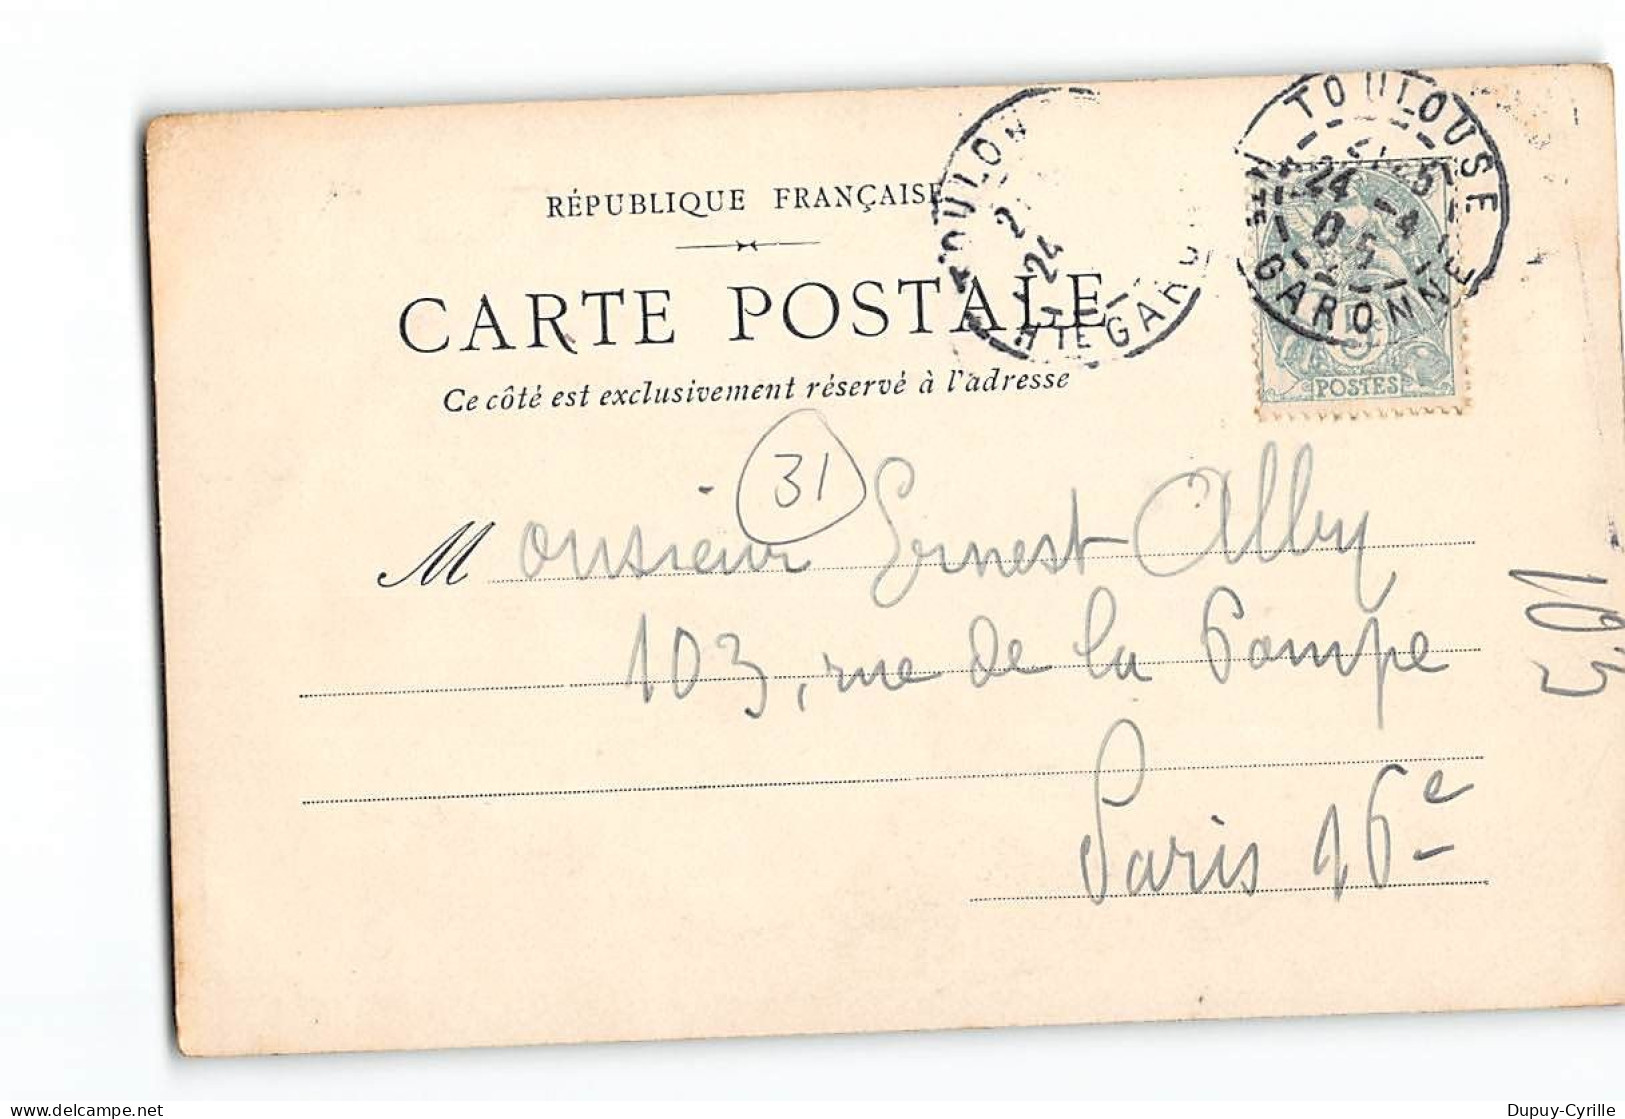 RÉPUBLIQUE FRANÇAISE
CARTE POSTALE
Ce côté est exclusivement réservé à l'adresse
TOULOUSE
24 -4
05
HTE GARONNE
TOULOU
24
HTE GARO
POSTES
31
Monsieur Ernest Alby
103, rue de la Pompe
Paris 16e
Dupuy-Cyrille